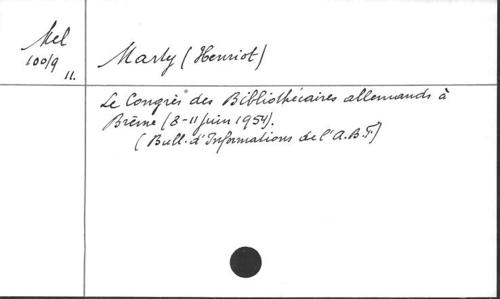 Mel
100/9
11.
Marty (Henriot)
Le Congrès des Bibliothécaires allemands à
Brême (8-11 juin 1954).
(Bull. d'Informations de l'A.B.F)